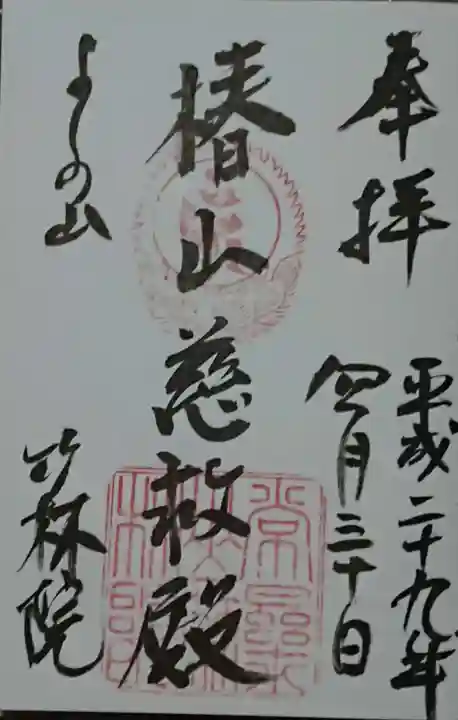 奉拝
平成二十九年
四月三十日
椿山慈救殿
よしの山
竹林院